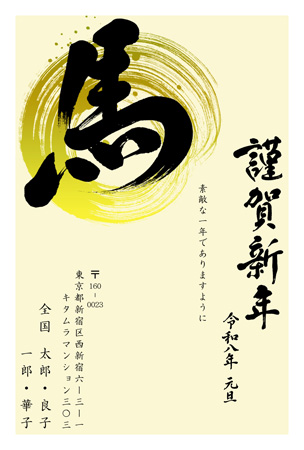 馬
謹賀新年
令和八年 元旦
素敵な一年でありますように
〒160-0023
東京都新宿区西新宿六ー三ー一
キタムラマンション三〇三
全国 太郎・良子
一郎・華子